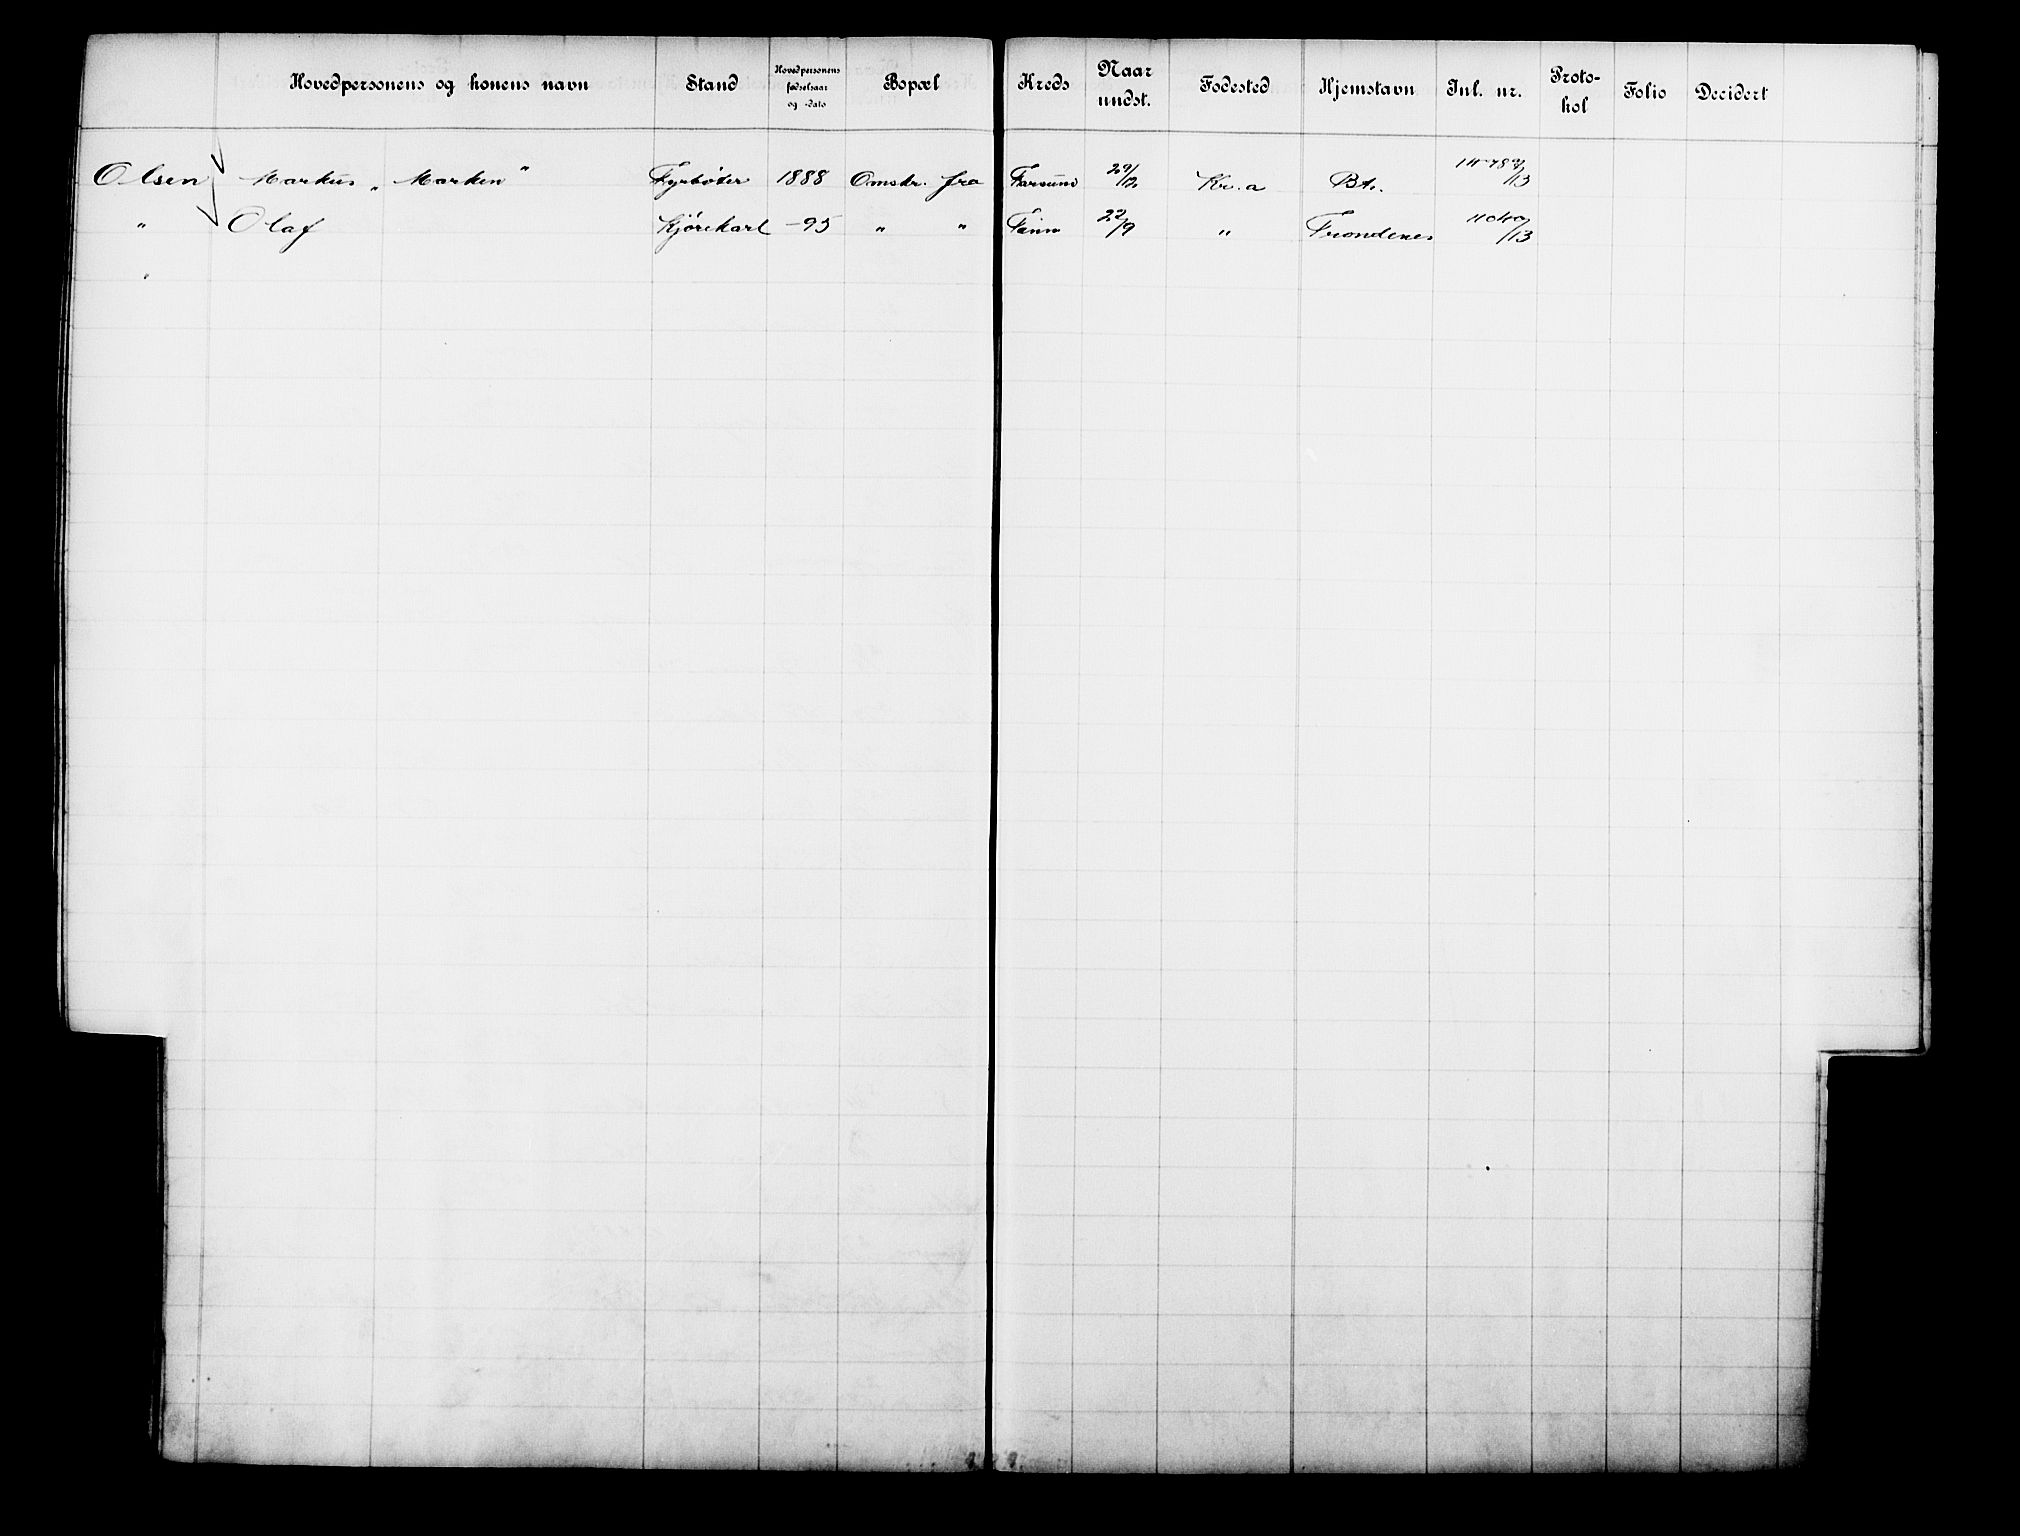 Hovedpersonens og konens navn Stand Hovedpersonens fødselsaar og -dato Bopæl Kreds Naar undst. Fødested Hjemstavn Inl. nr. Proto-kol Folio Decidert
Olsen Markus „ Marken " Fyrbøter 1888 Omstr. fra Farsund 29/12 Kr.a Bt.
" Olaf Kjørekarl -95 " " 22/9 " Trondenes
"